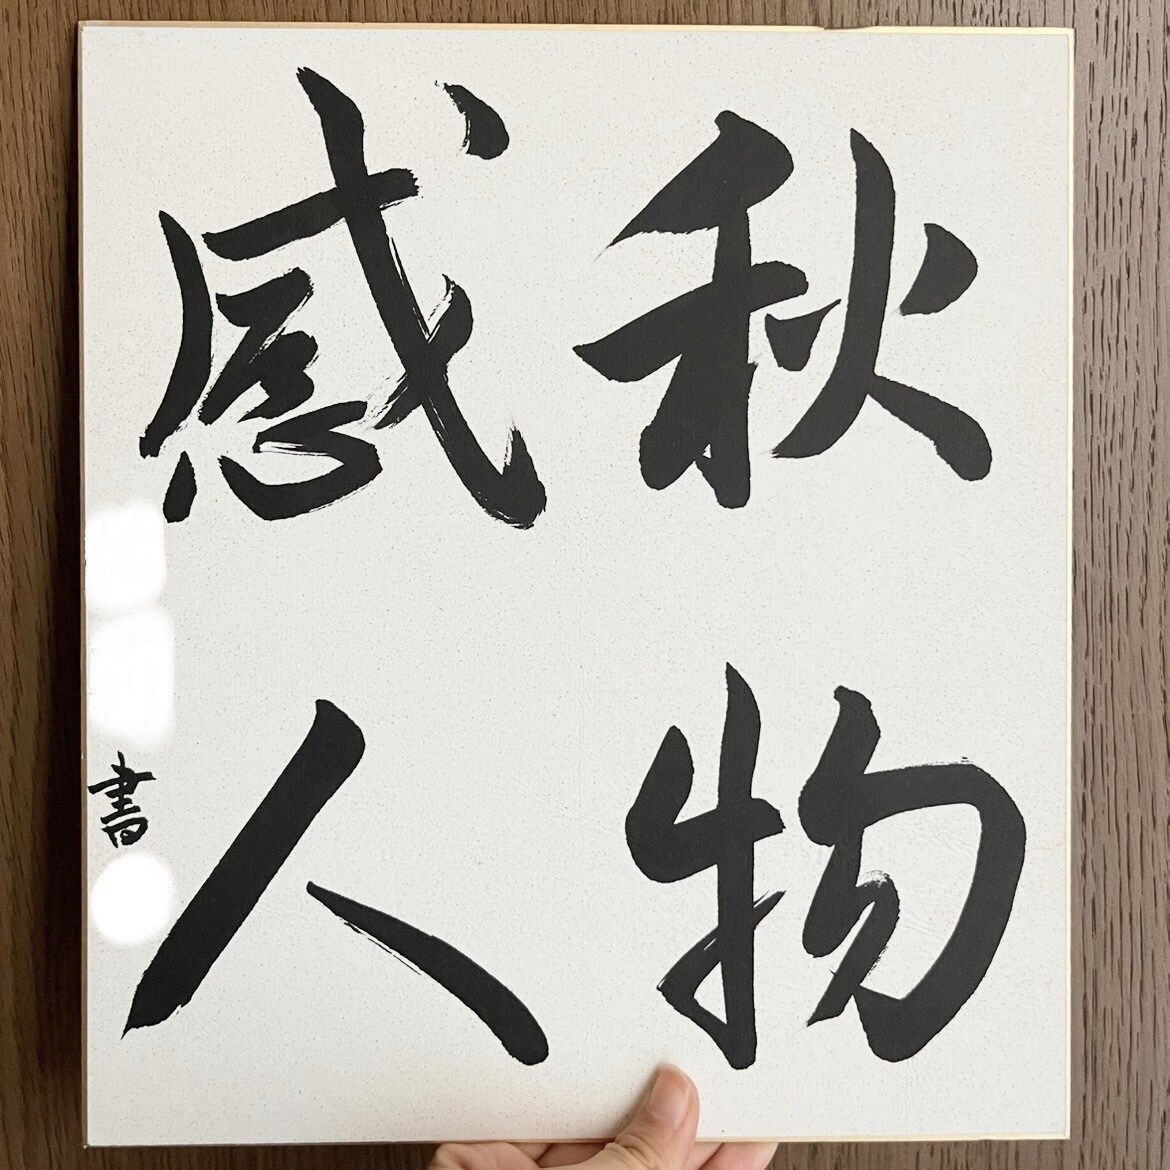 秋物
感人
書